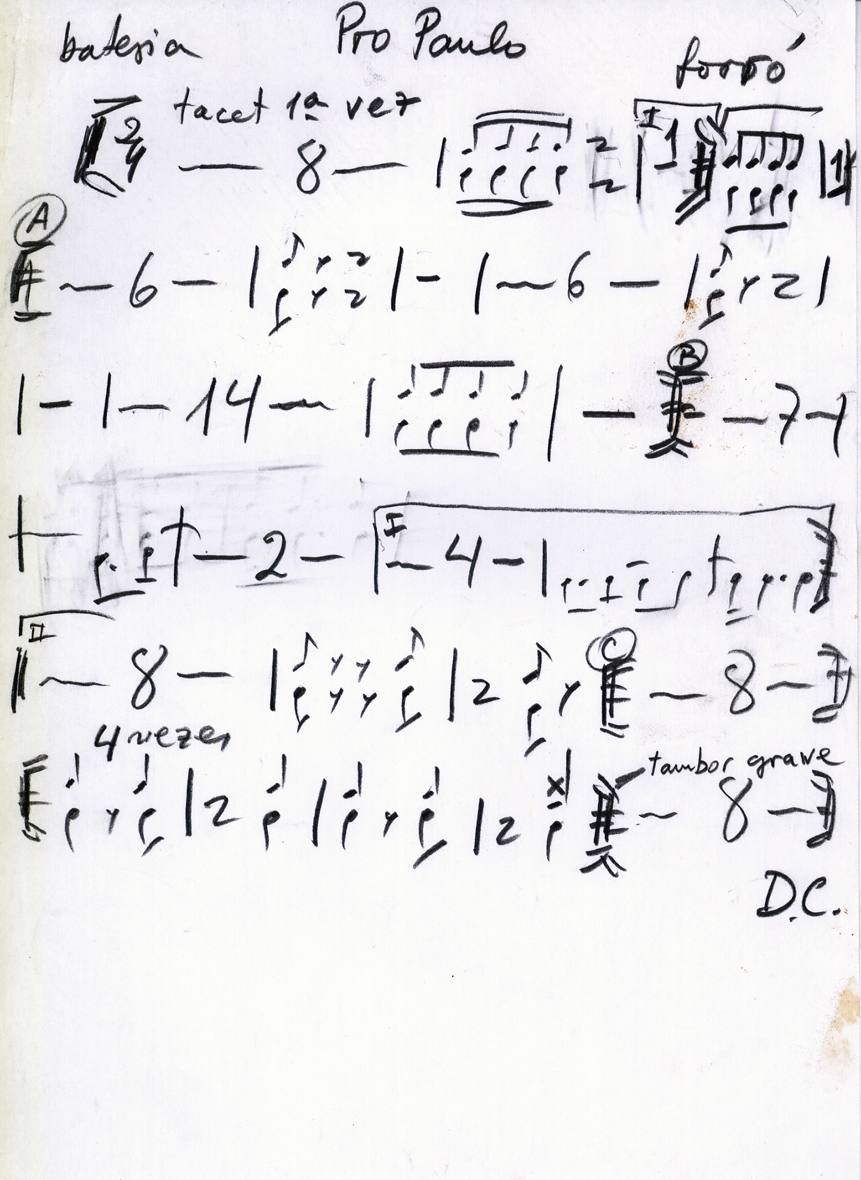 bateria Pro Paulo forró
tacet 1ª vez
2/4 — 8 — I 1
A
— 6 — — — 6 —
B
— — 14 — — — 7 —
— — 2 — I — 4 —
II C
— 8 — — 8 —
4 vezes tambor grave
— 8 —
D.C.